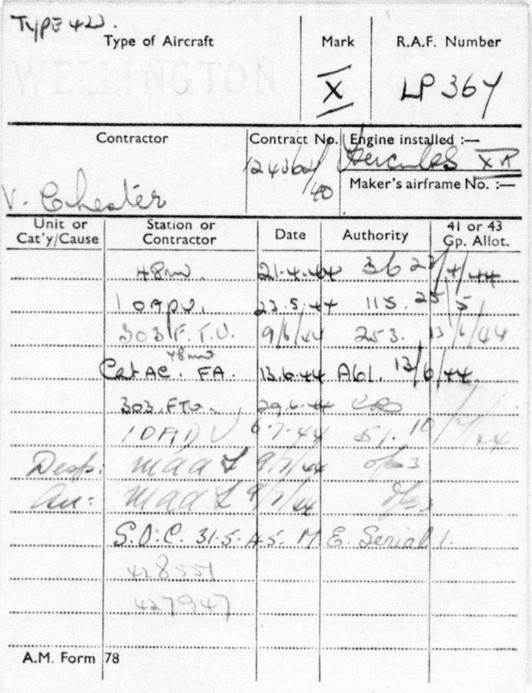 TYPE 422.
Type of Aircraft Mark R.A.F. Number
WELLINGTON
X LP 367
Contractor Contract No. Engine installed :—
Hercules
124362/40
Maker's airframe No. :—
V. Chester
Unit or Cat'y/Cause Station or Contractor Date Authority 41 or 43 Gp. Allot.
48mu. 21.4.44 36 /4/44
1 OADU. 23.5.44 115. 25/5
303 F.T.U. 9/6/44 253. 13/6/44
48mu
Cat AC. FA. 13.6.44 A61. 13/6/44
303.FTU. 29.6.44
1 OADU 6.7.44 51. 10/7/44
Desp: maaf 9/7/44
Arr: maaf 9/7/44
S.O.C. 31.5.45. M.E. Serial 1.
428551
427947
A.M. Form 78